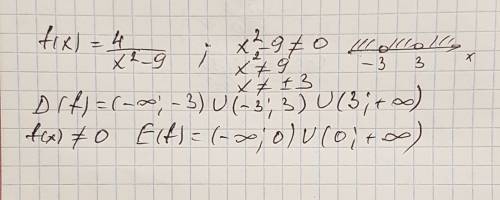 f(x) = 4/(x²-9) ; x²-9 ≠ 0
x² ≠ 9
x ≠ ± 3
-3 3 x
D(f) = (-∞; -3) ∪ (-3; 3) ∪ (3; +∞)
f(x) ≠ 0 E(f) = (-∞; 0) ∪ (0; +∞)